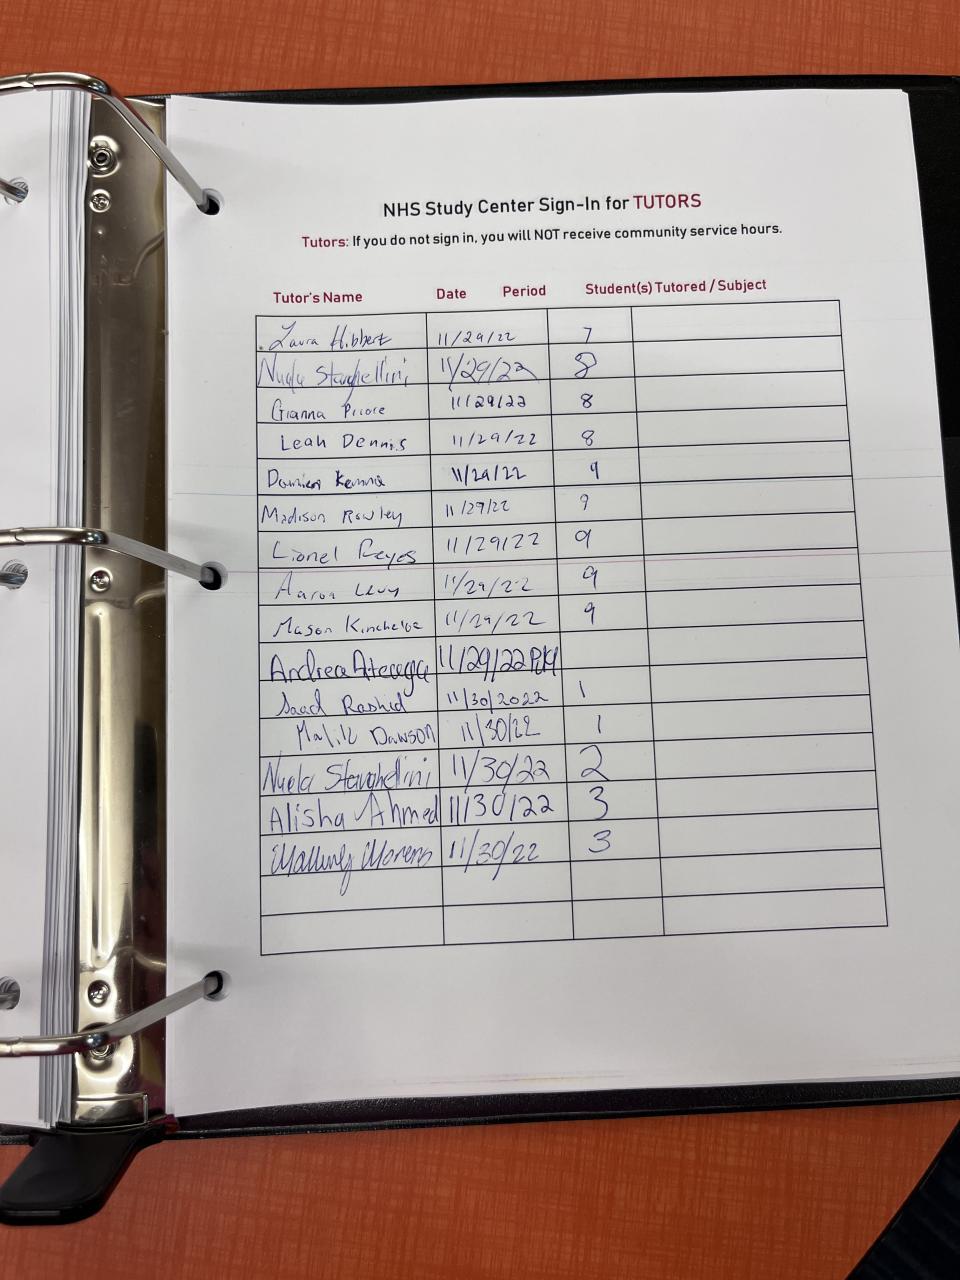 NHS Study Center Sign-In for TUTORS
Tutors: If you do not sign in, you will NOT receive community service hours.
Tutor's Name Date Period Student(s) Tutored / Subject
Laura Hibbert 11/29/22 7
Nuala Starghellini 11/29/22 8
Gianna Priore 11/29/22 8
Leah Dennis 11/29/22 8
Damien Kenna 11/29/22 9
Madison Rowley 11/29/22 9
Lionel Reyes 11/29/22 9
Aaron Levy 11/29/22 9
Mason Kincheloe 11/29/22 9
Andrea 11/29/22
Saad Rashid 11/30/2022 1
Malik Dawson 11/30/22 1
11/30/22 2
Alisha Ahmed 11/30/22 3
11/30/22 3